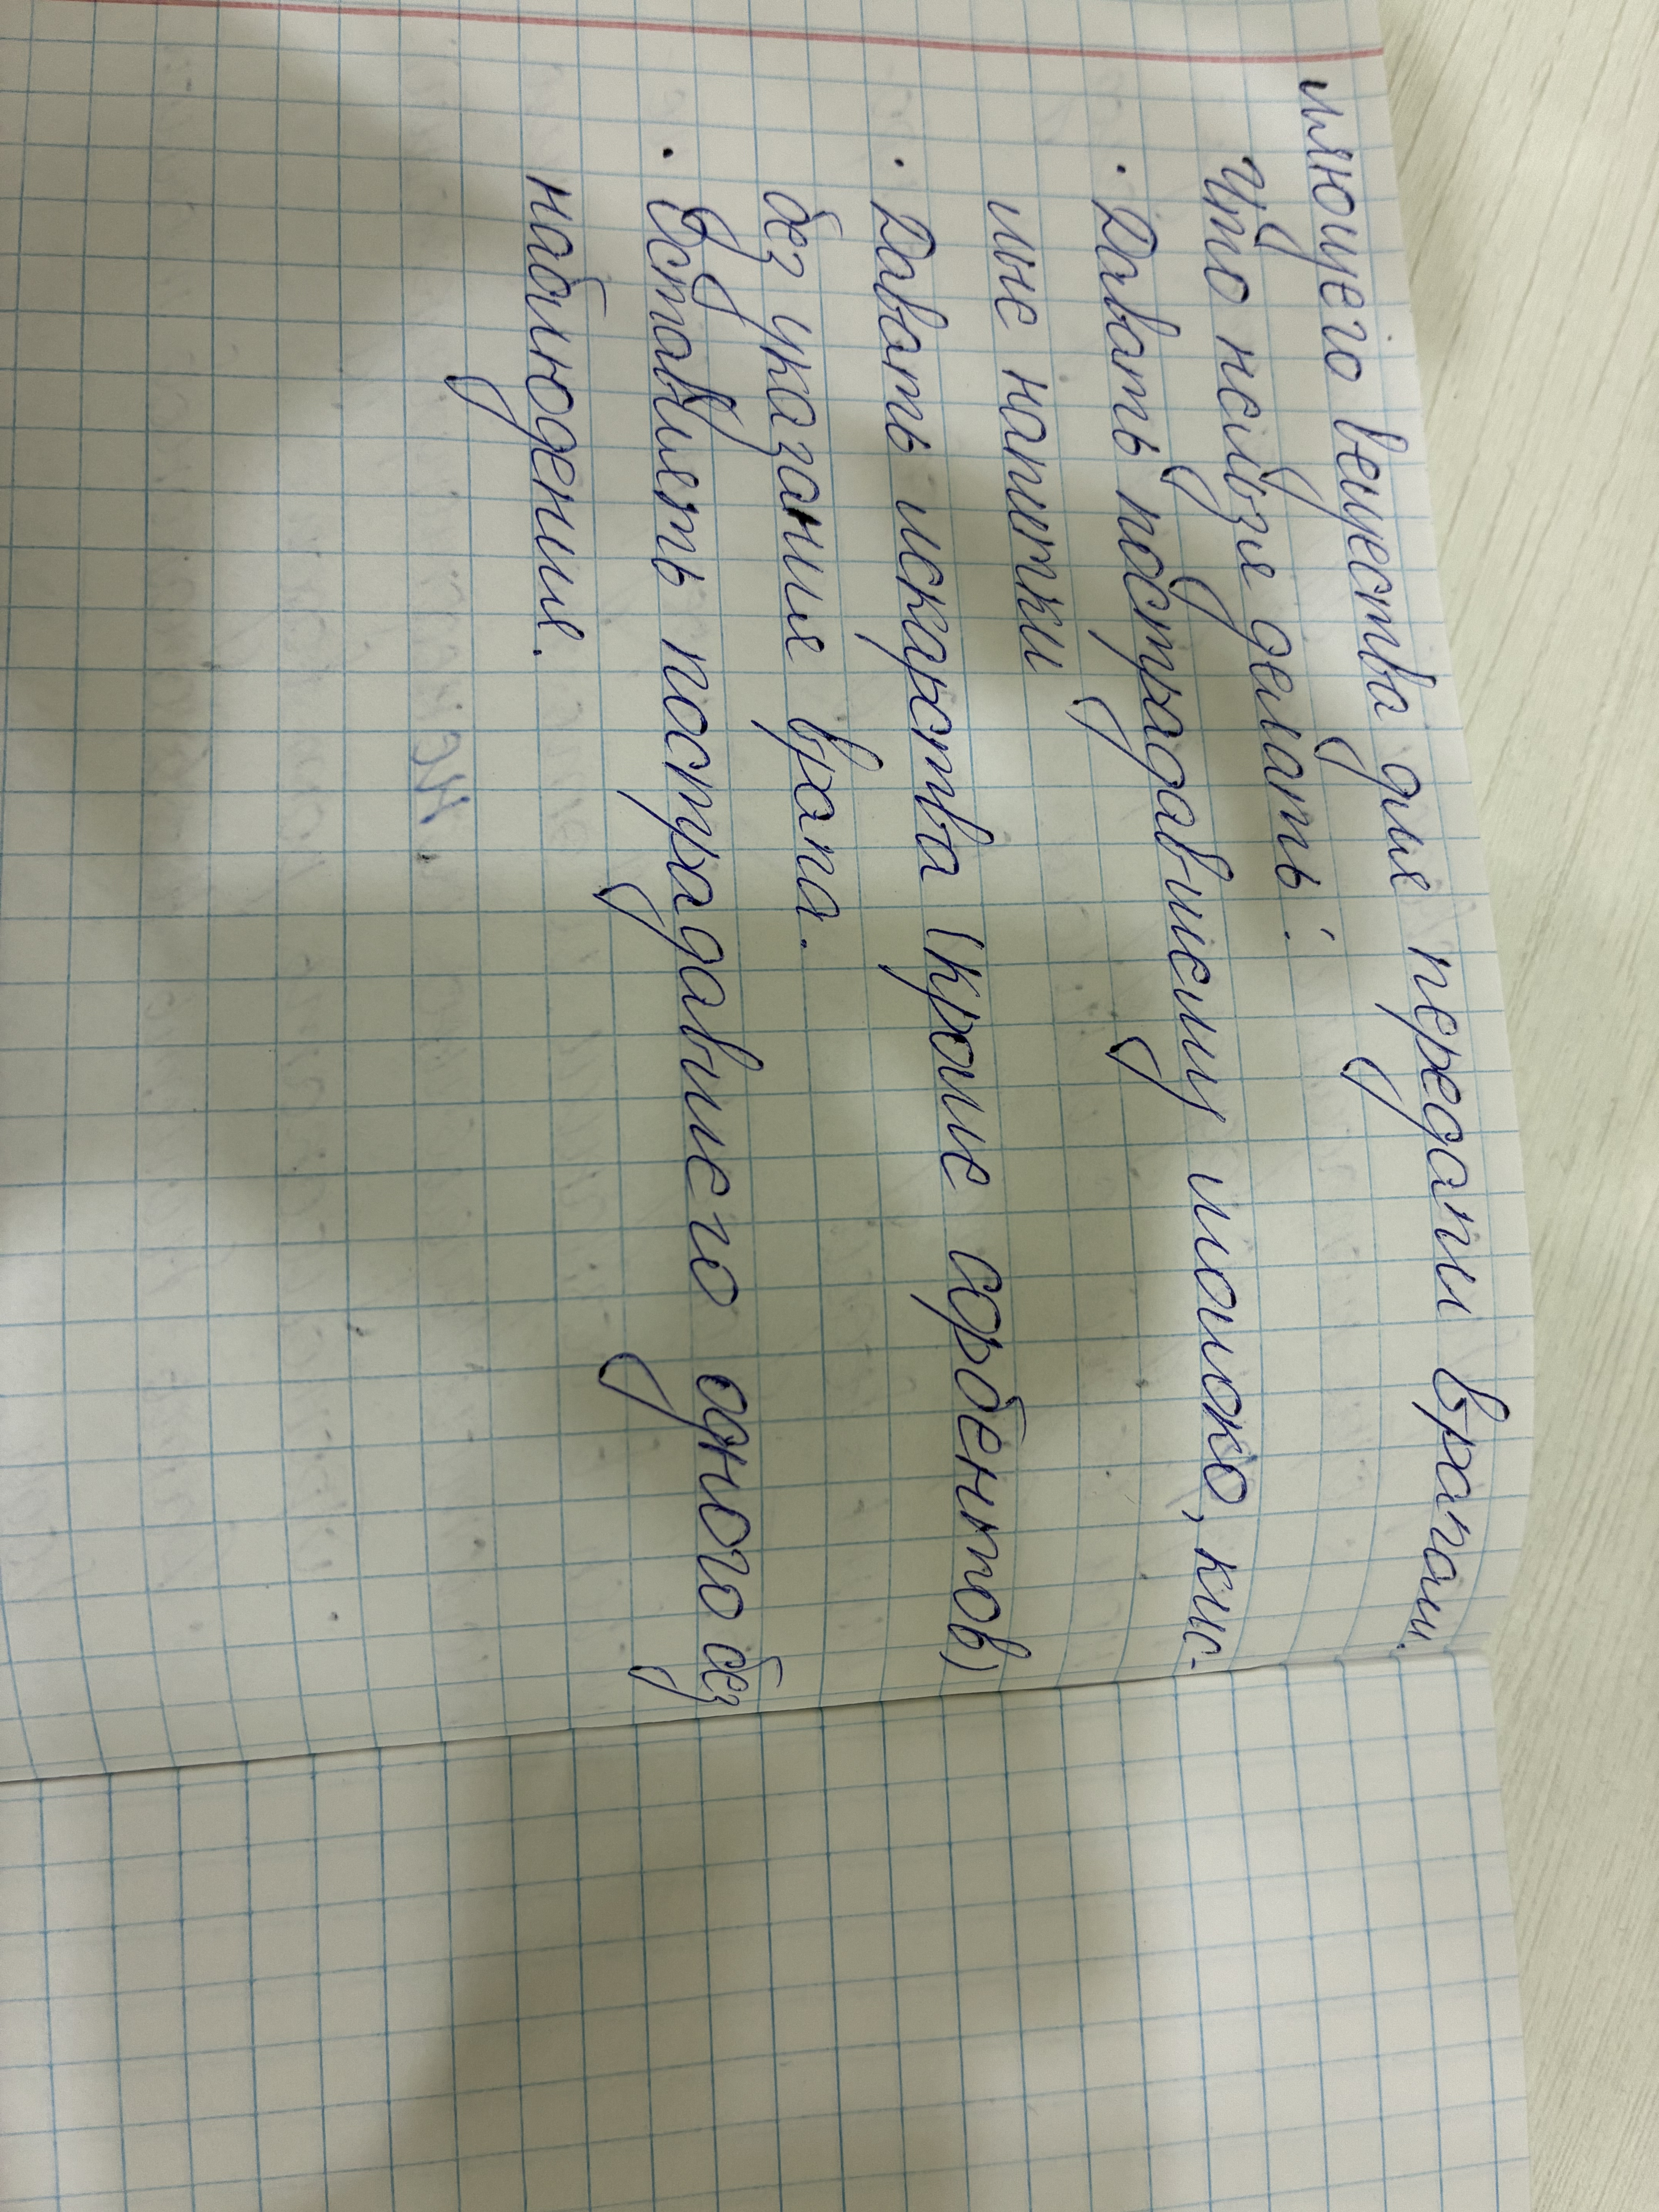 ляющего вещества для передачи врачам.
Что нельзя делать:
· Давать пострадавшему молоко, кис-
лые напитки
· Давать лекарства (кроме сорбентов)
без указания врача.
· Оставлять пострадавшего одного без
наблюдения.